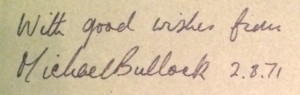 With good wishes from
Michael Bullock 2.8.71